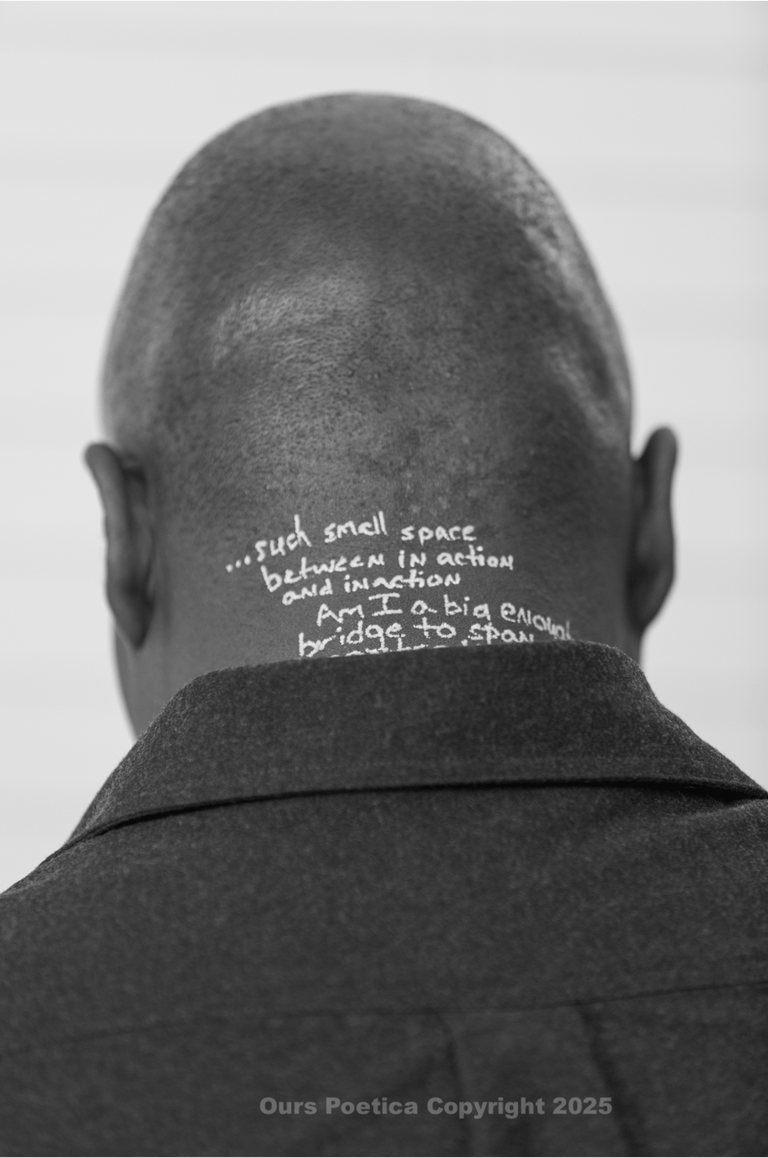 ...such small space
between in action
and inaction
Am I a big enough
bridge to span
Ours Poetica Copyright 2025